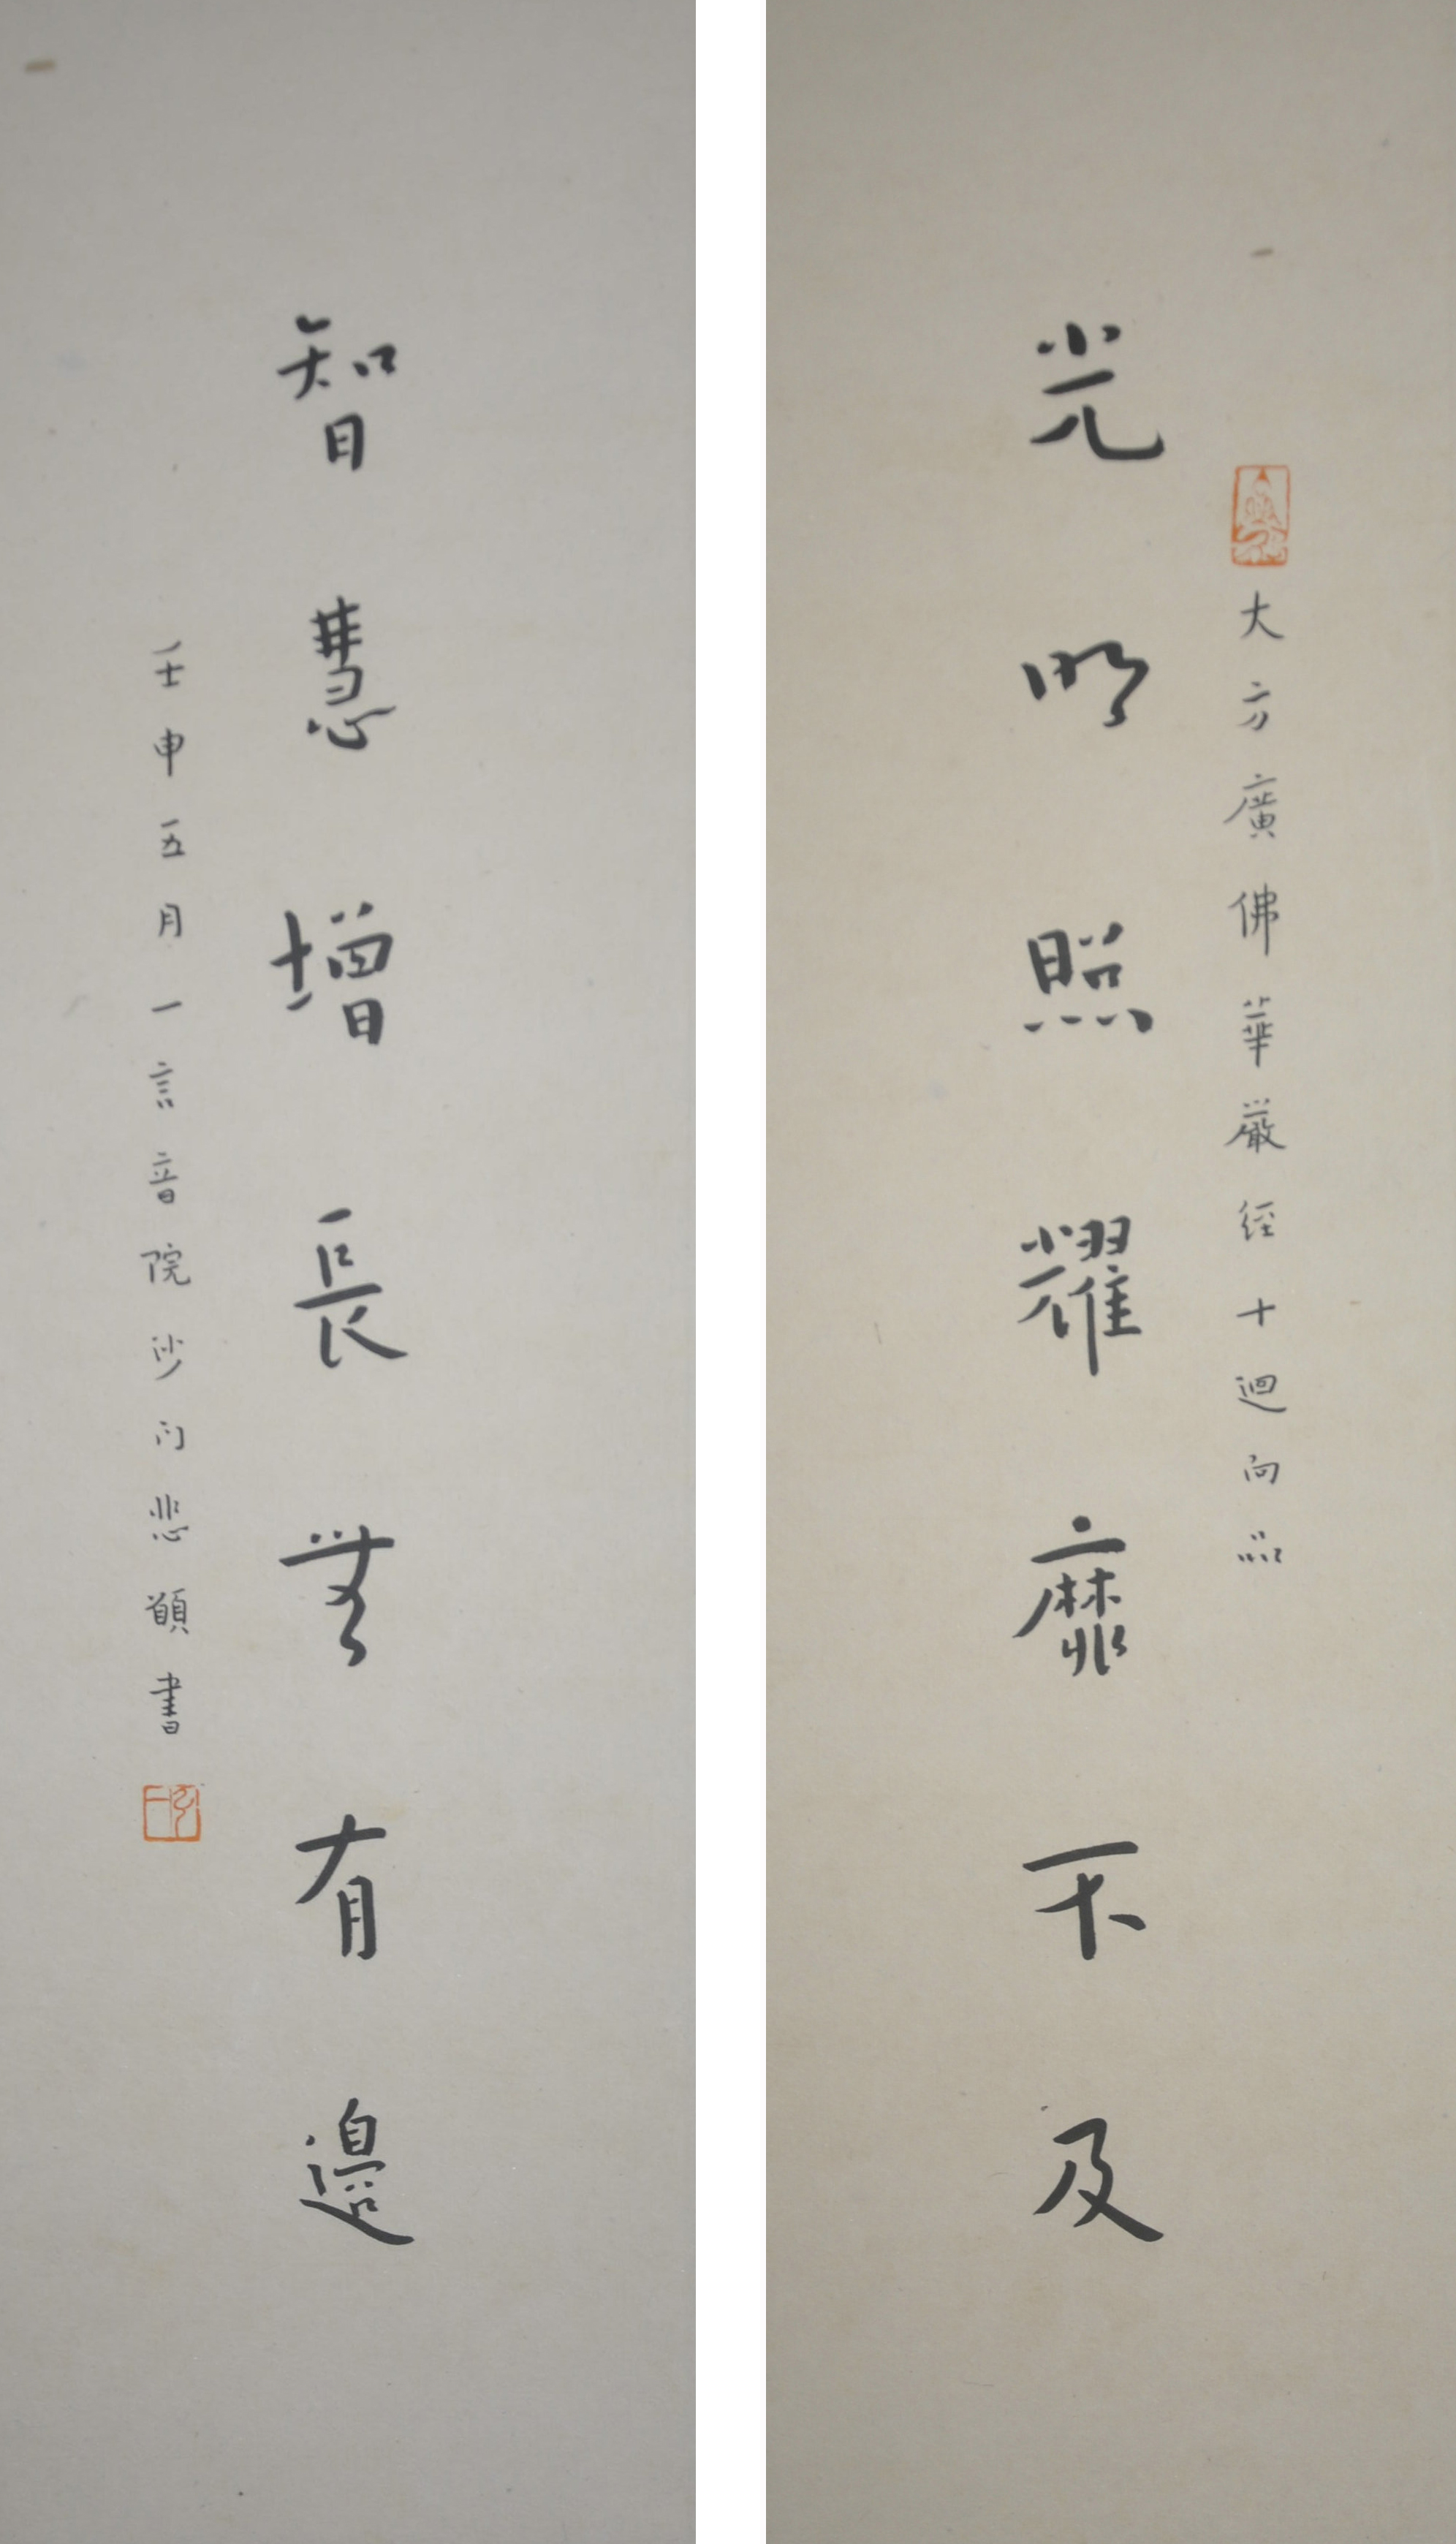 大方廣佛華嚴經十迴向品
光明照耀靡不及
智慧增長無有邊
壬申五月一言音院沙門悲願書